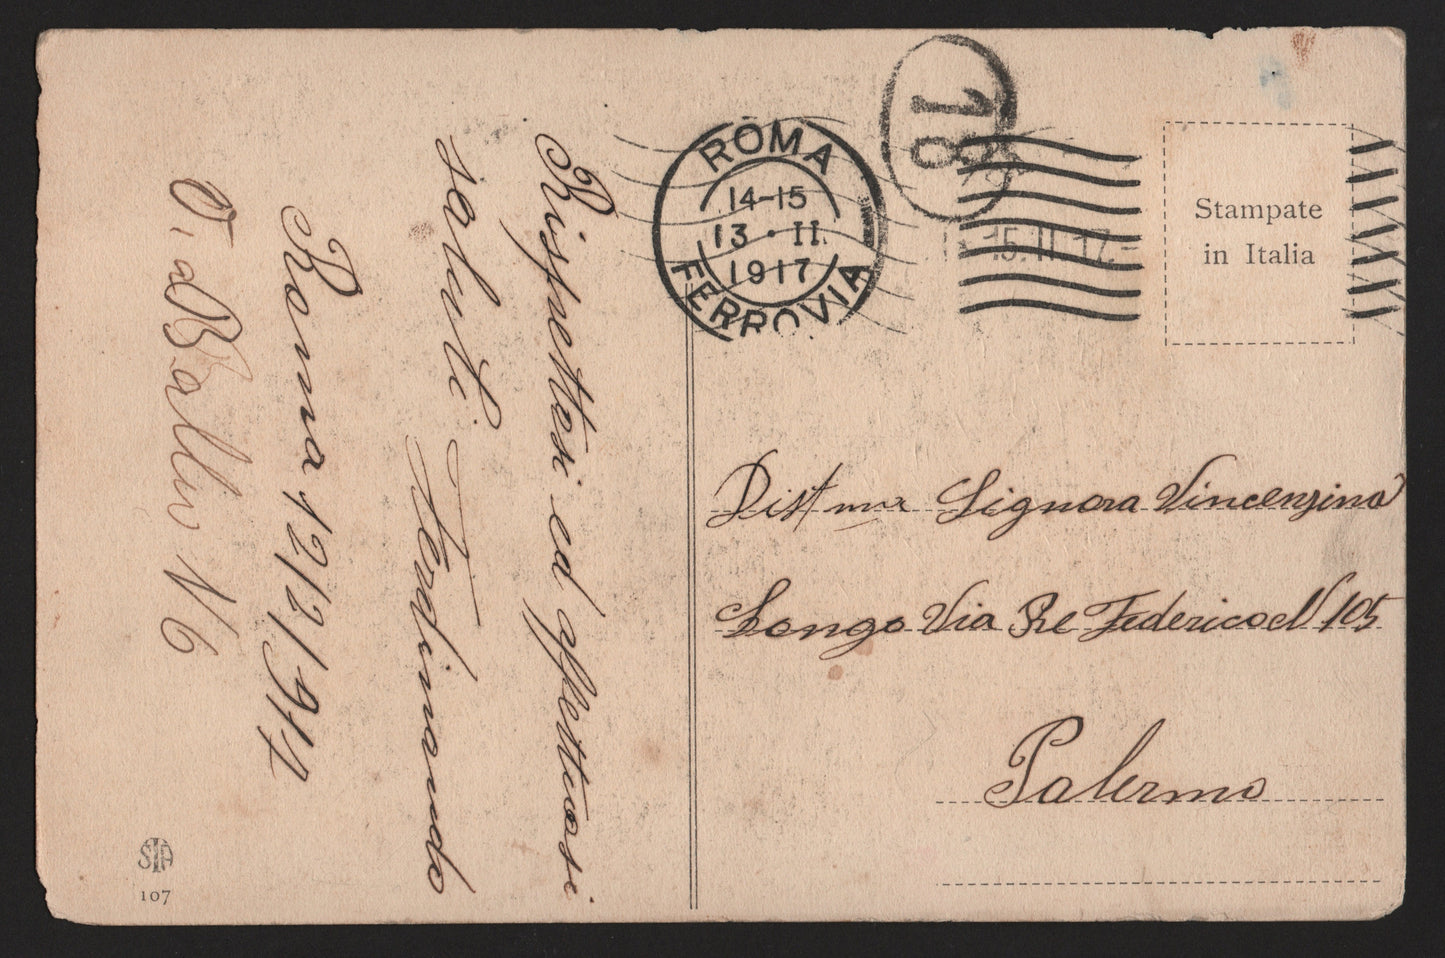 Rispettosi ed affettuosi
saluti Ferdinando
Roma 12/2/1917
N 6
ROMA
14-15
13 · II.
1917
FERROVIA
18
15. II. 17.
Stampate
in Italia
Dist ma Signora Vincenzina
Longo Via Re Federico N 105
Palermo
STA
107